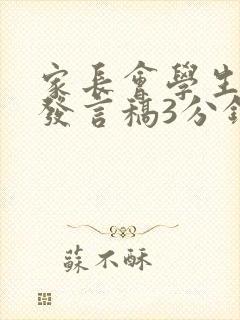 家長會學生
發言稿3分鐘
蘇不酥